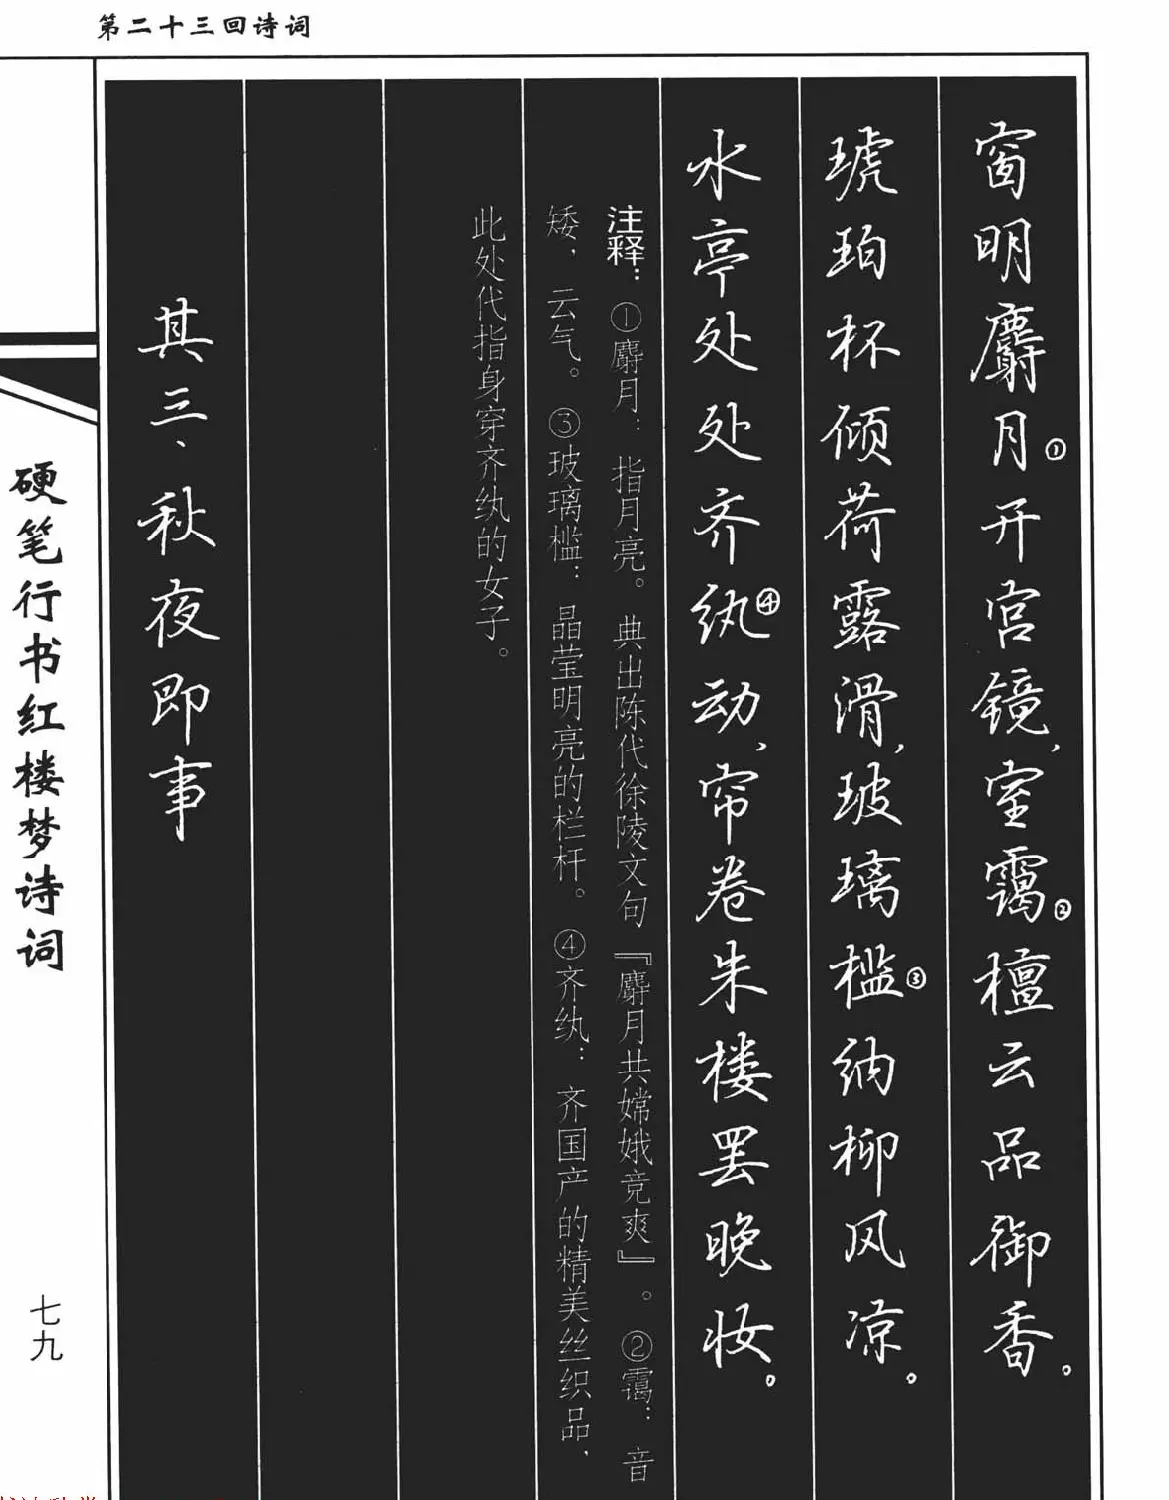 第二十三回诗词
窗明麝月①开宫镜，室霭②檀云品御香。
琥珀杯倾荷露滑，玻璃槛③纳柳风凉。
水亭处处齐纨④动，帘卷朱楼罢晚妆。
注释：①麝月：指月亮。典出陈代徐陵文句『麝月共嫦娥竞爽』。②霭：音
矮，云气。③玻璃槛：晶莹明亮的栏杆。④齐纨：齐国产的精美丝织品，
此处代指身穿齐纨的女子。
其三、秋夜即事
硬笔行书红楼梦诗词
七九